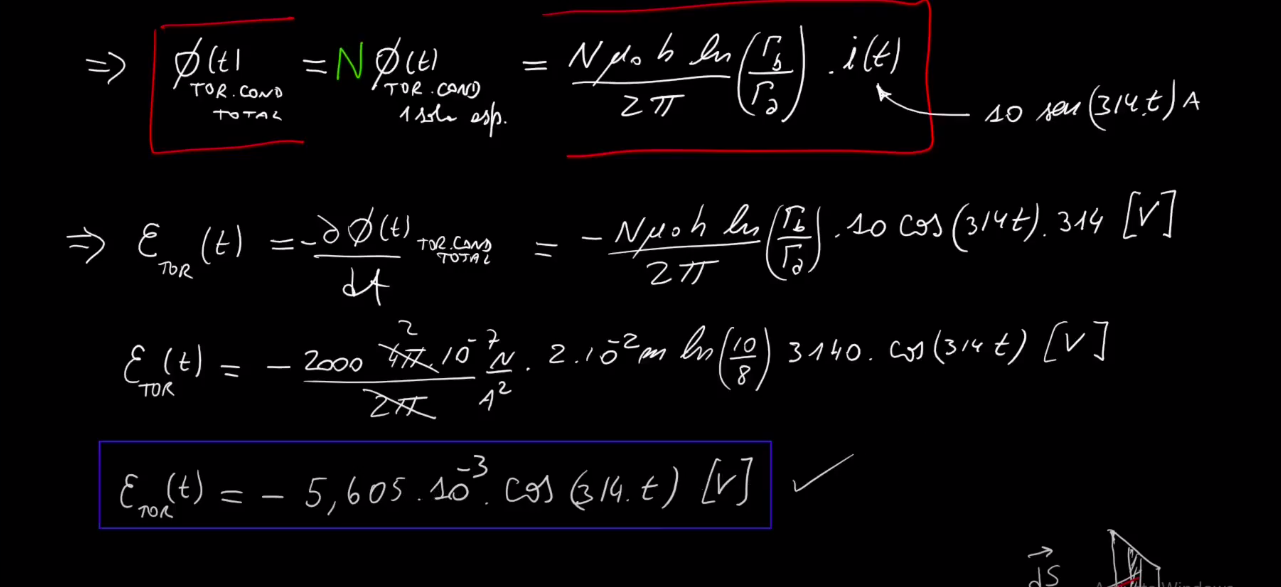 ⇒ ϕ(t) TOR.COND TOTAL = N ϕ(t) TOR.COND 1 sola esp. = Nμ₀ h ln(r_b/r_a) / 2π . i(t) ← 10 sen(314.t) A
⇒ ε_TOR(t) = -∂ϕ(t) TOR.COND TOTAL / dt = - Nμ₀ h ln(r_b/r_a) / 2π . 10 cos(314t). 314 [V]
ε_TOR(t) = - 2000 4π.10⁻⁷ / 2π N/A² . 2.10⁻² m ln(10/8) 3140. cos(314 t) [V]
ε_TOR(t) = - 5,605.10⁻³. cos(314.t) [V] ✓
dS